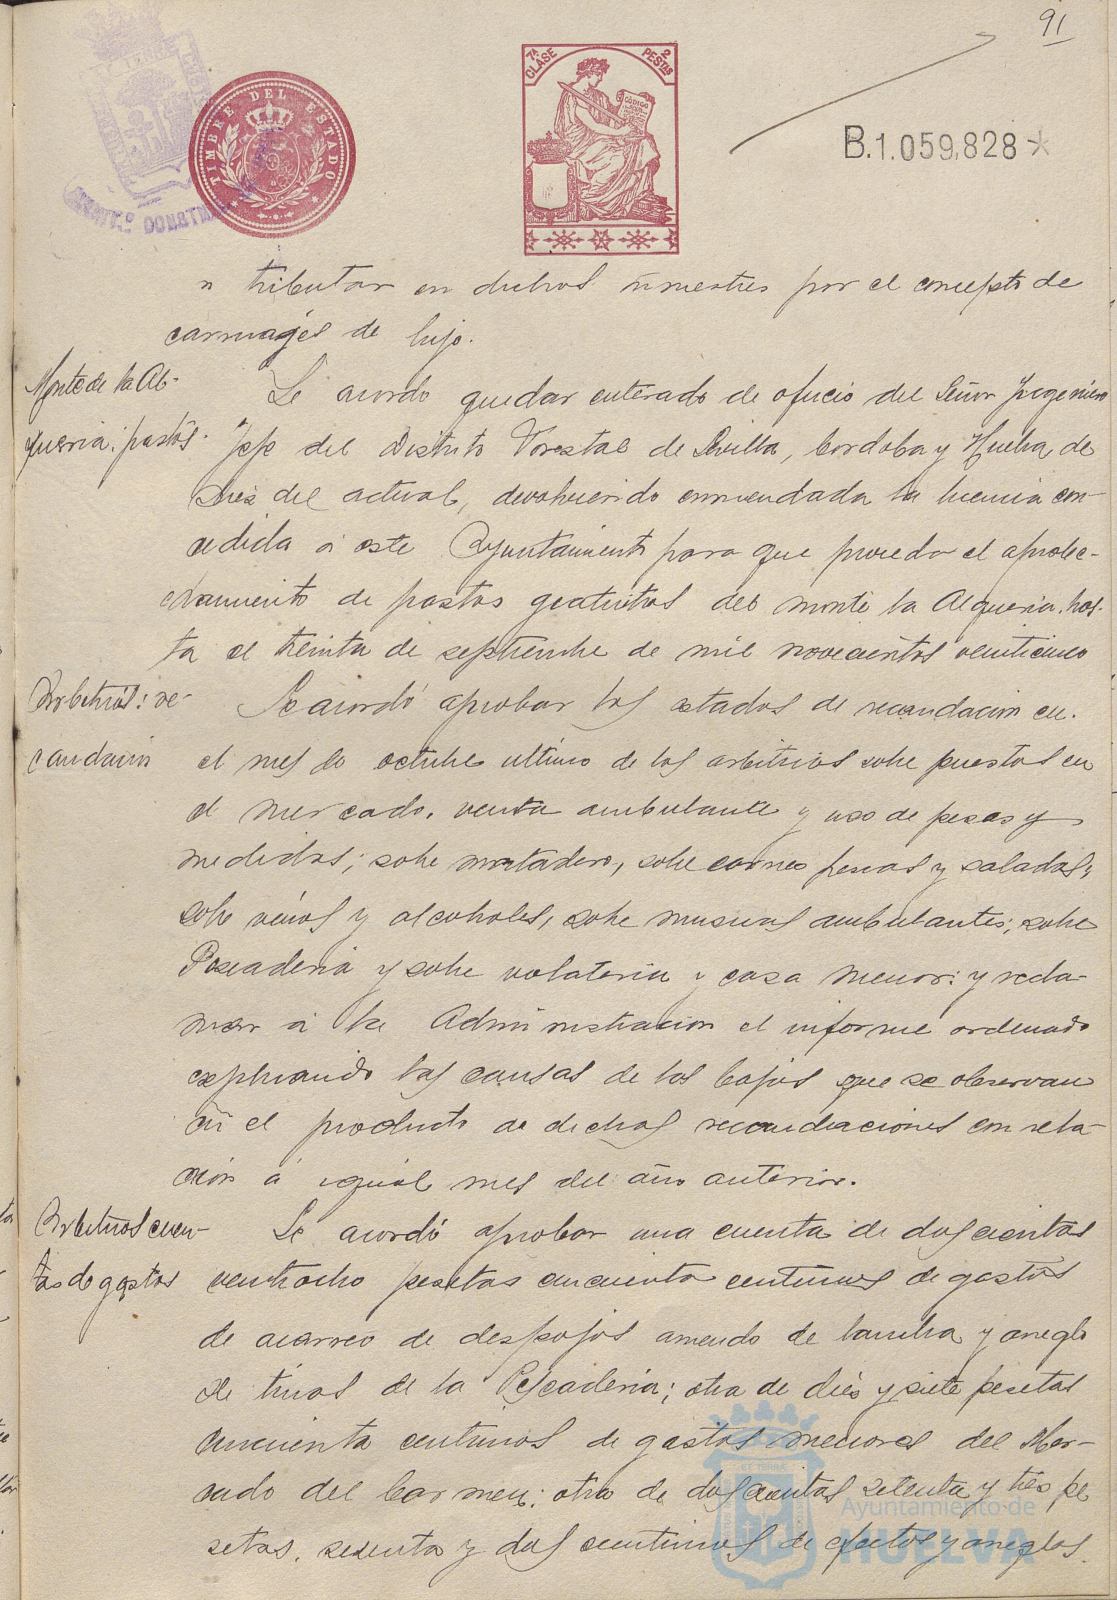 91
7ª CLASE
2 PESTAS
CÓDIGO
TIMBRE DEL ESTADO
B.1.059,828
tributar en dichos trimestres por el concepto de
carruajes de lujo.
Monte de la Al-
quería: pastos.
Se acordó quedar enterado de oficio del Señor Ingeniero
Jefe del Distrito Forestal de Sevilla, Cordoba y Huelva, de
tres del actual, devolviendo enmendada la licencia con-
cedida á este Ayuntamiento para que proceda el aprove-
chamiento de pastos gratuitos del monte la Alquería, has-
ta el treinta de septiembre de mil novecientos veinticinco
Arbitrios: re-
caudación
Se acordó aprobar los estados de recaudacion en
el mes de octubre ultimo de los arbitrios sobre puestos en
el mercado, venta ambulante y uso de pesas y
medidas; sobre matadero, sobre carnes frescas y saladas,
sobre vinos y alcoholes, sobre musicas ambulantes; sobre
Pescaderia y sobre volateria y caza menor: y recla-
mar á la Administracion el informe ordenado
explicando las causas de las bajas que se observan
en el producto de dichas recaudaciones con rela-
ción á igual mes del año anterior.
Arbitrios cuen-
tas de gastos
Se acordó aprobar una cuenta de doscientas
veintiocho pesetas cincuenta centimos de gastos
de acarreo de despojos arriendo de lancha y arreglo
de tinas de la Pescaderia; otra de diés y siete pesetas
cincuenta centimos de gastos menores del Mer-
cado del Carmen; otra de doscientas setenta y tres pe
setas, sesenta y dos centimos de efectos y arreglos.
Ayuntamiento de
HUELVA